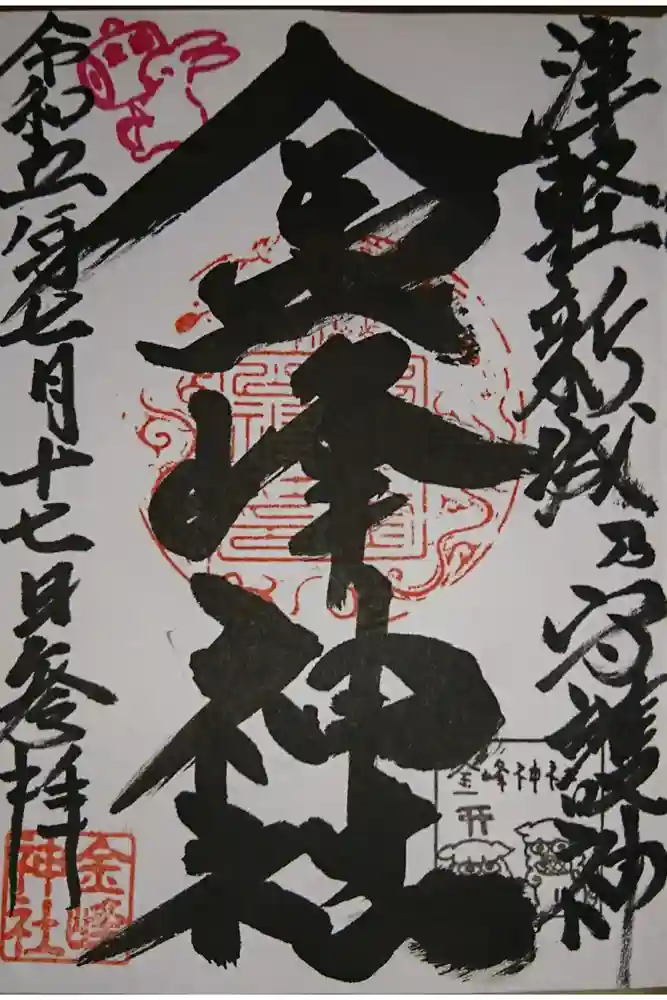 津軽新城乃守護神
金峰神社
令和五年七月十七日参拝
金峰神社
金峰
神社